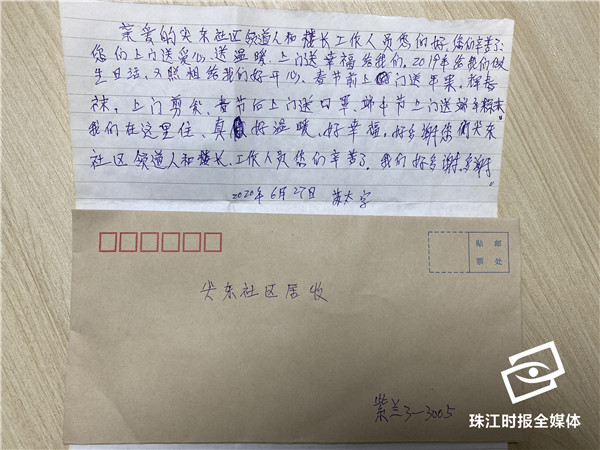 亲爱的尖东社区领道人和楼长工作人员您们好,您们辛苦了,
您们上门送爱心、送温暖、上门送幸福给我们,2019年给我们做
生日话,又照相给我们好开心、春节前上门送苹果,挥春
袜,上门剪发,春节后上门送口罩,端午节上门送端午粽来
我们在这里住、真好温暖、好幸福,好多谢您们尖东
社区领道人和楼长、工作人员您们辛苦了,我们好多谢,多谢
2020年6月27日 黄大
贴 邮
票 处
尖东社区居收
紫兰3-3005
珠江时报全媒体